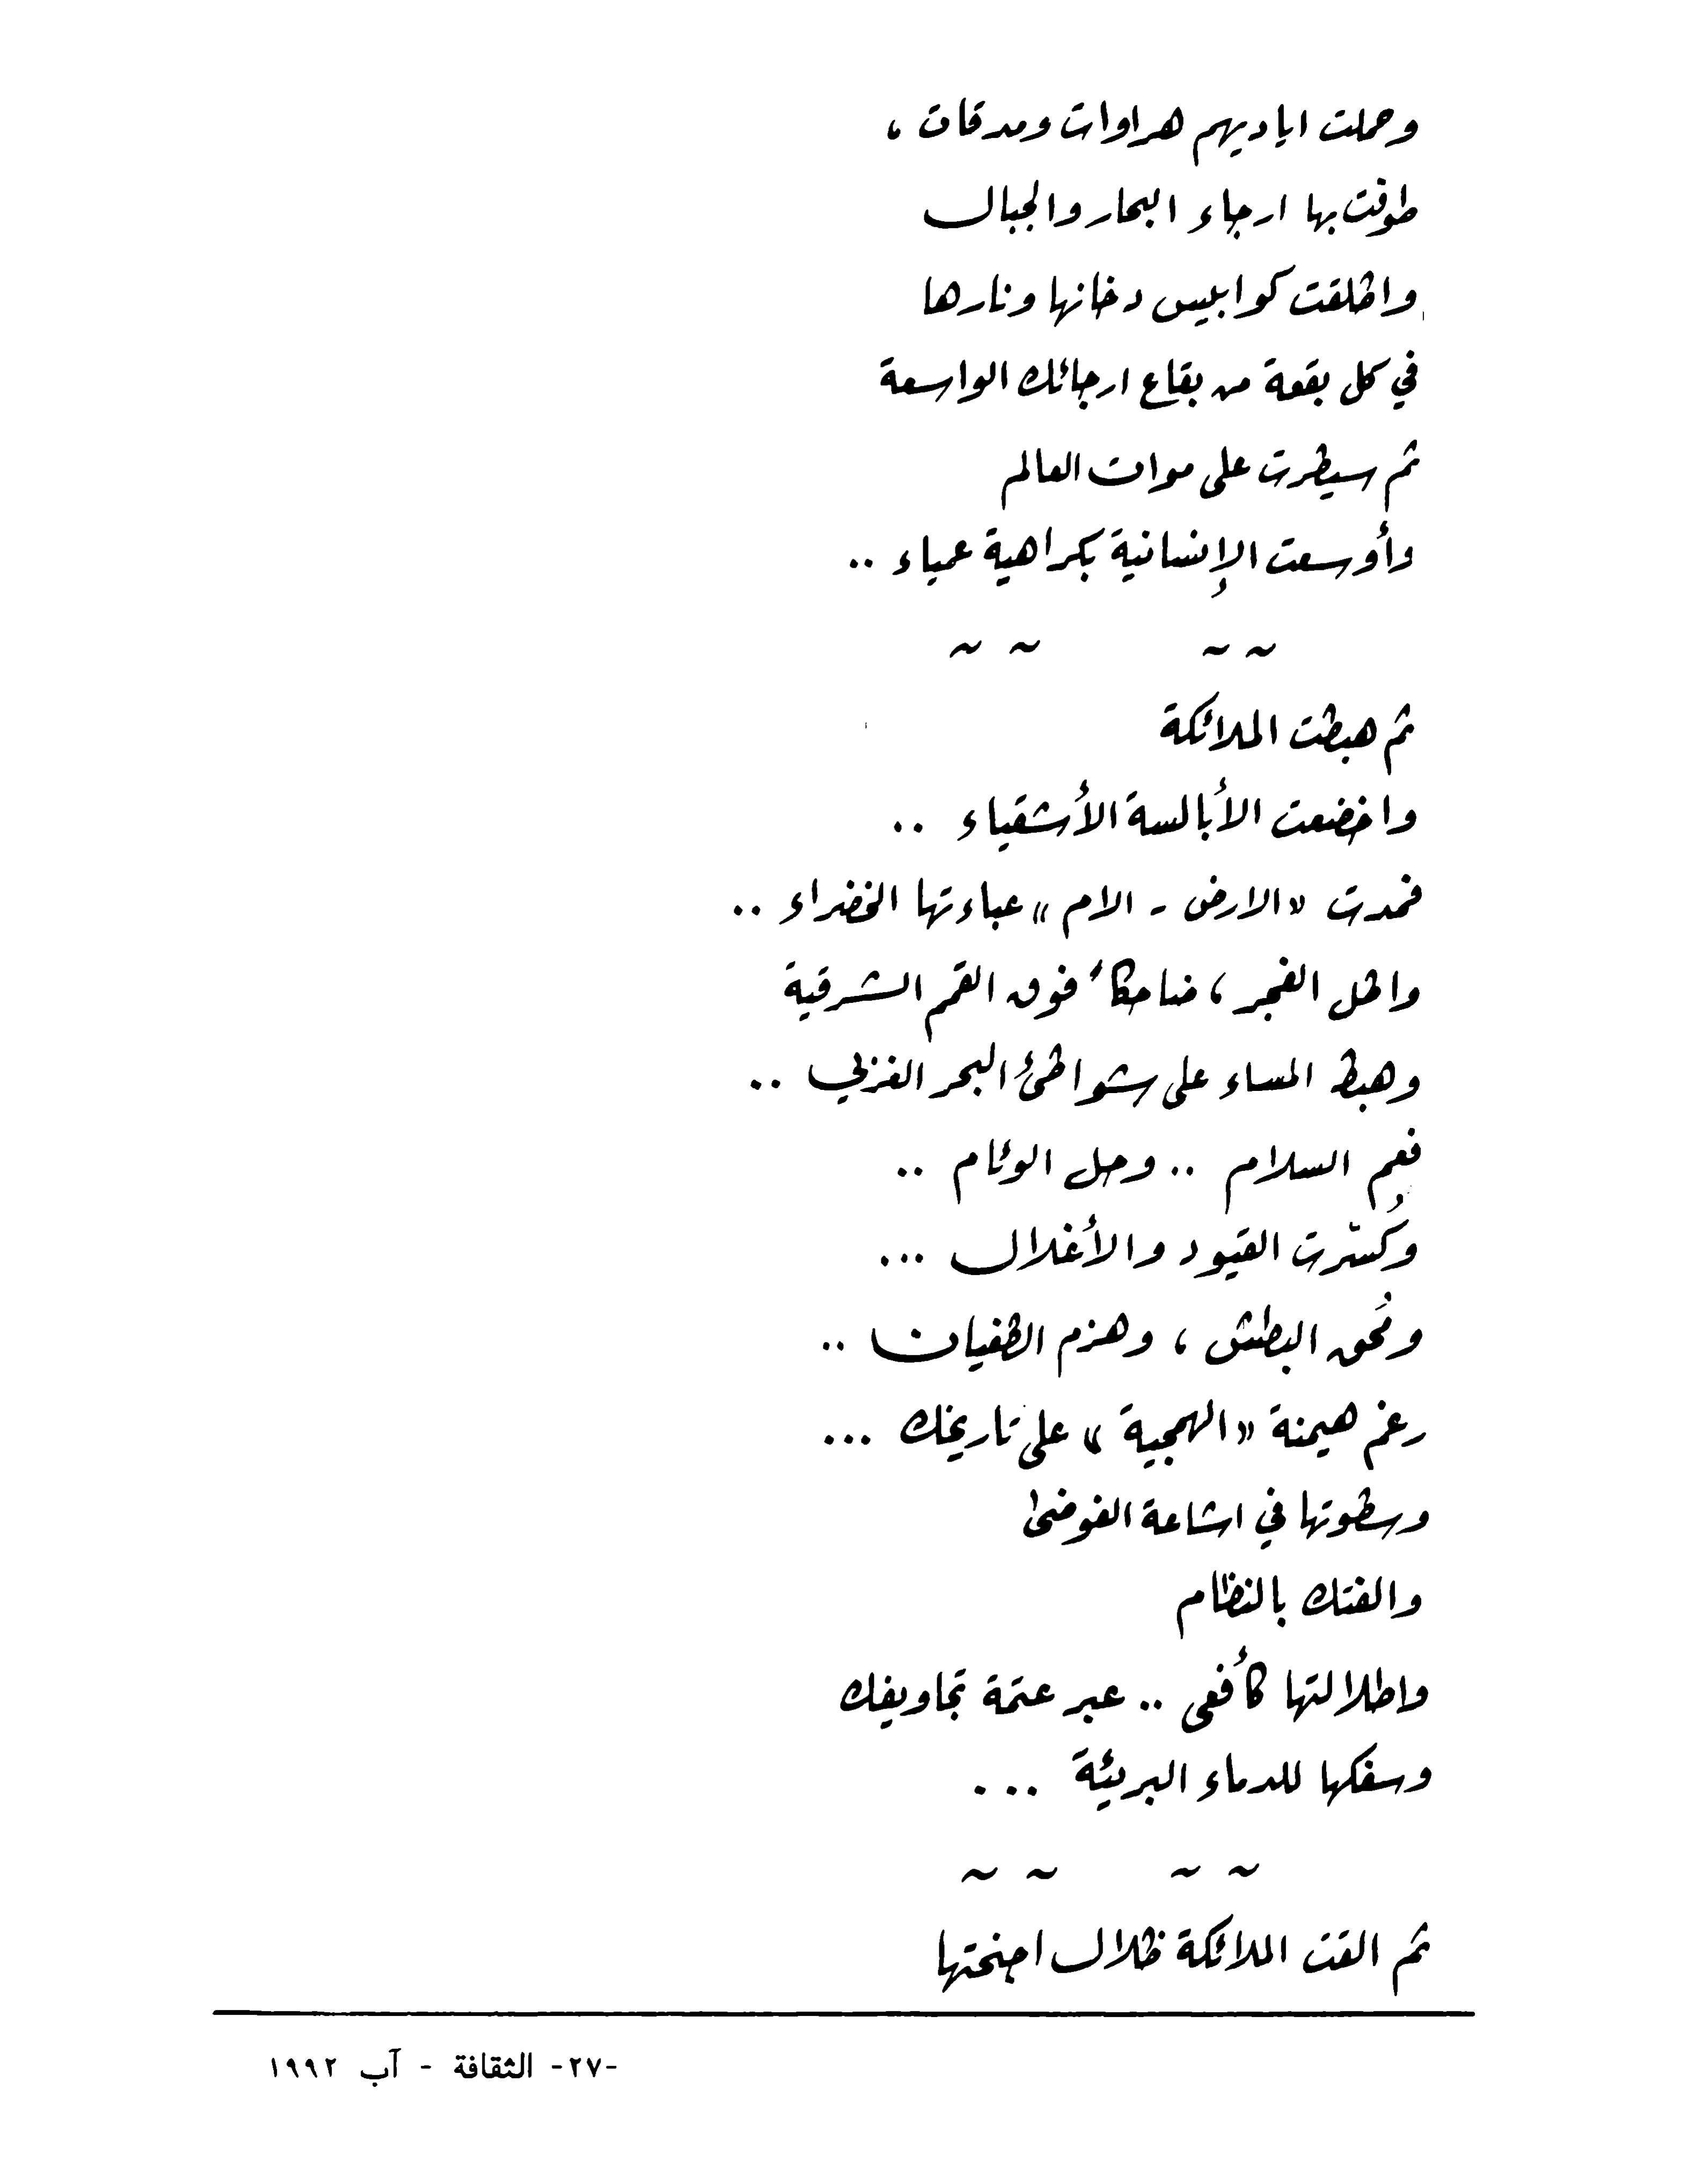 وحملت اياديهم هراوات ومدقات ،
طوفت بها ارجاء البحار والجبال
واطلقت كوابيس دخانها ونارها
في كل بقعة من بقاع ارجائك الواسعة
ثم سيطرت على موات العالم
وأوسعت الإنسانية بكراهية عمياء ..
~ ~ ~ ~
ثم هبطت الملائكة
واخضعت الأبالسة الأشقياء ..
فمدت «الارض - الام» عباءتها الخضراء ..
واطل الفجر ، ضاحكاً فوق القمم الشرقية
وهبط المساء على شواطئ البحر الغربي ..
فعم السلام .. وحل الوئام ..
وكُسّرت القيود والأغلال ...
ومُحق البطش ، وهزم الطغيان ..
رغم هيمنة «الهمجية» على تاريخك ...
وسطوتها في اشاعة الفوضى
والفتك بالنظام
واطلالتها كأفعى .. عبر عتمة تجاويفك
وسفكها للدماء البريئة ...
~ ~ ~ ~
ثم القت الملائكة ظلال اجنحتها
-٢٧- الثقافة - آب ١٩٩٢